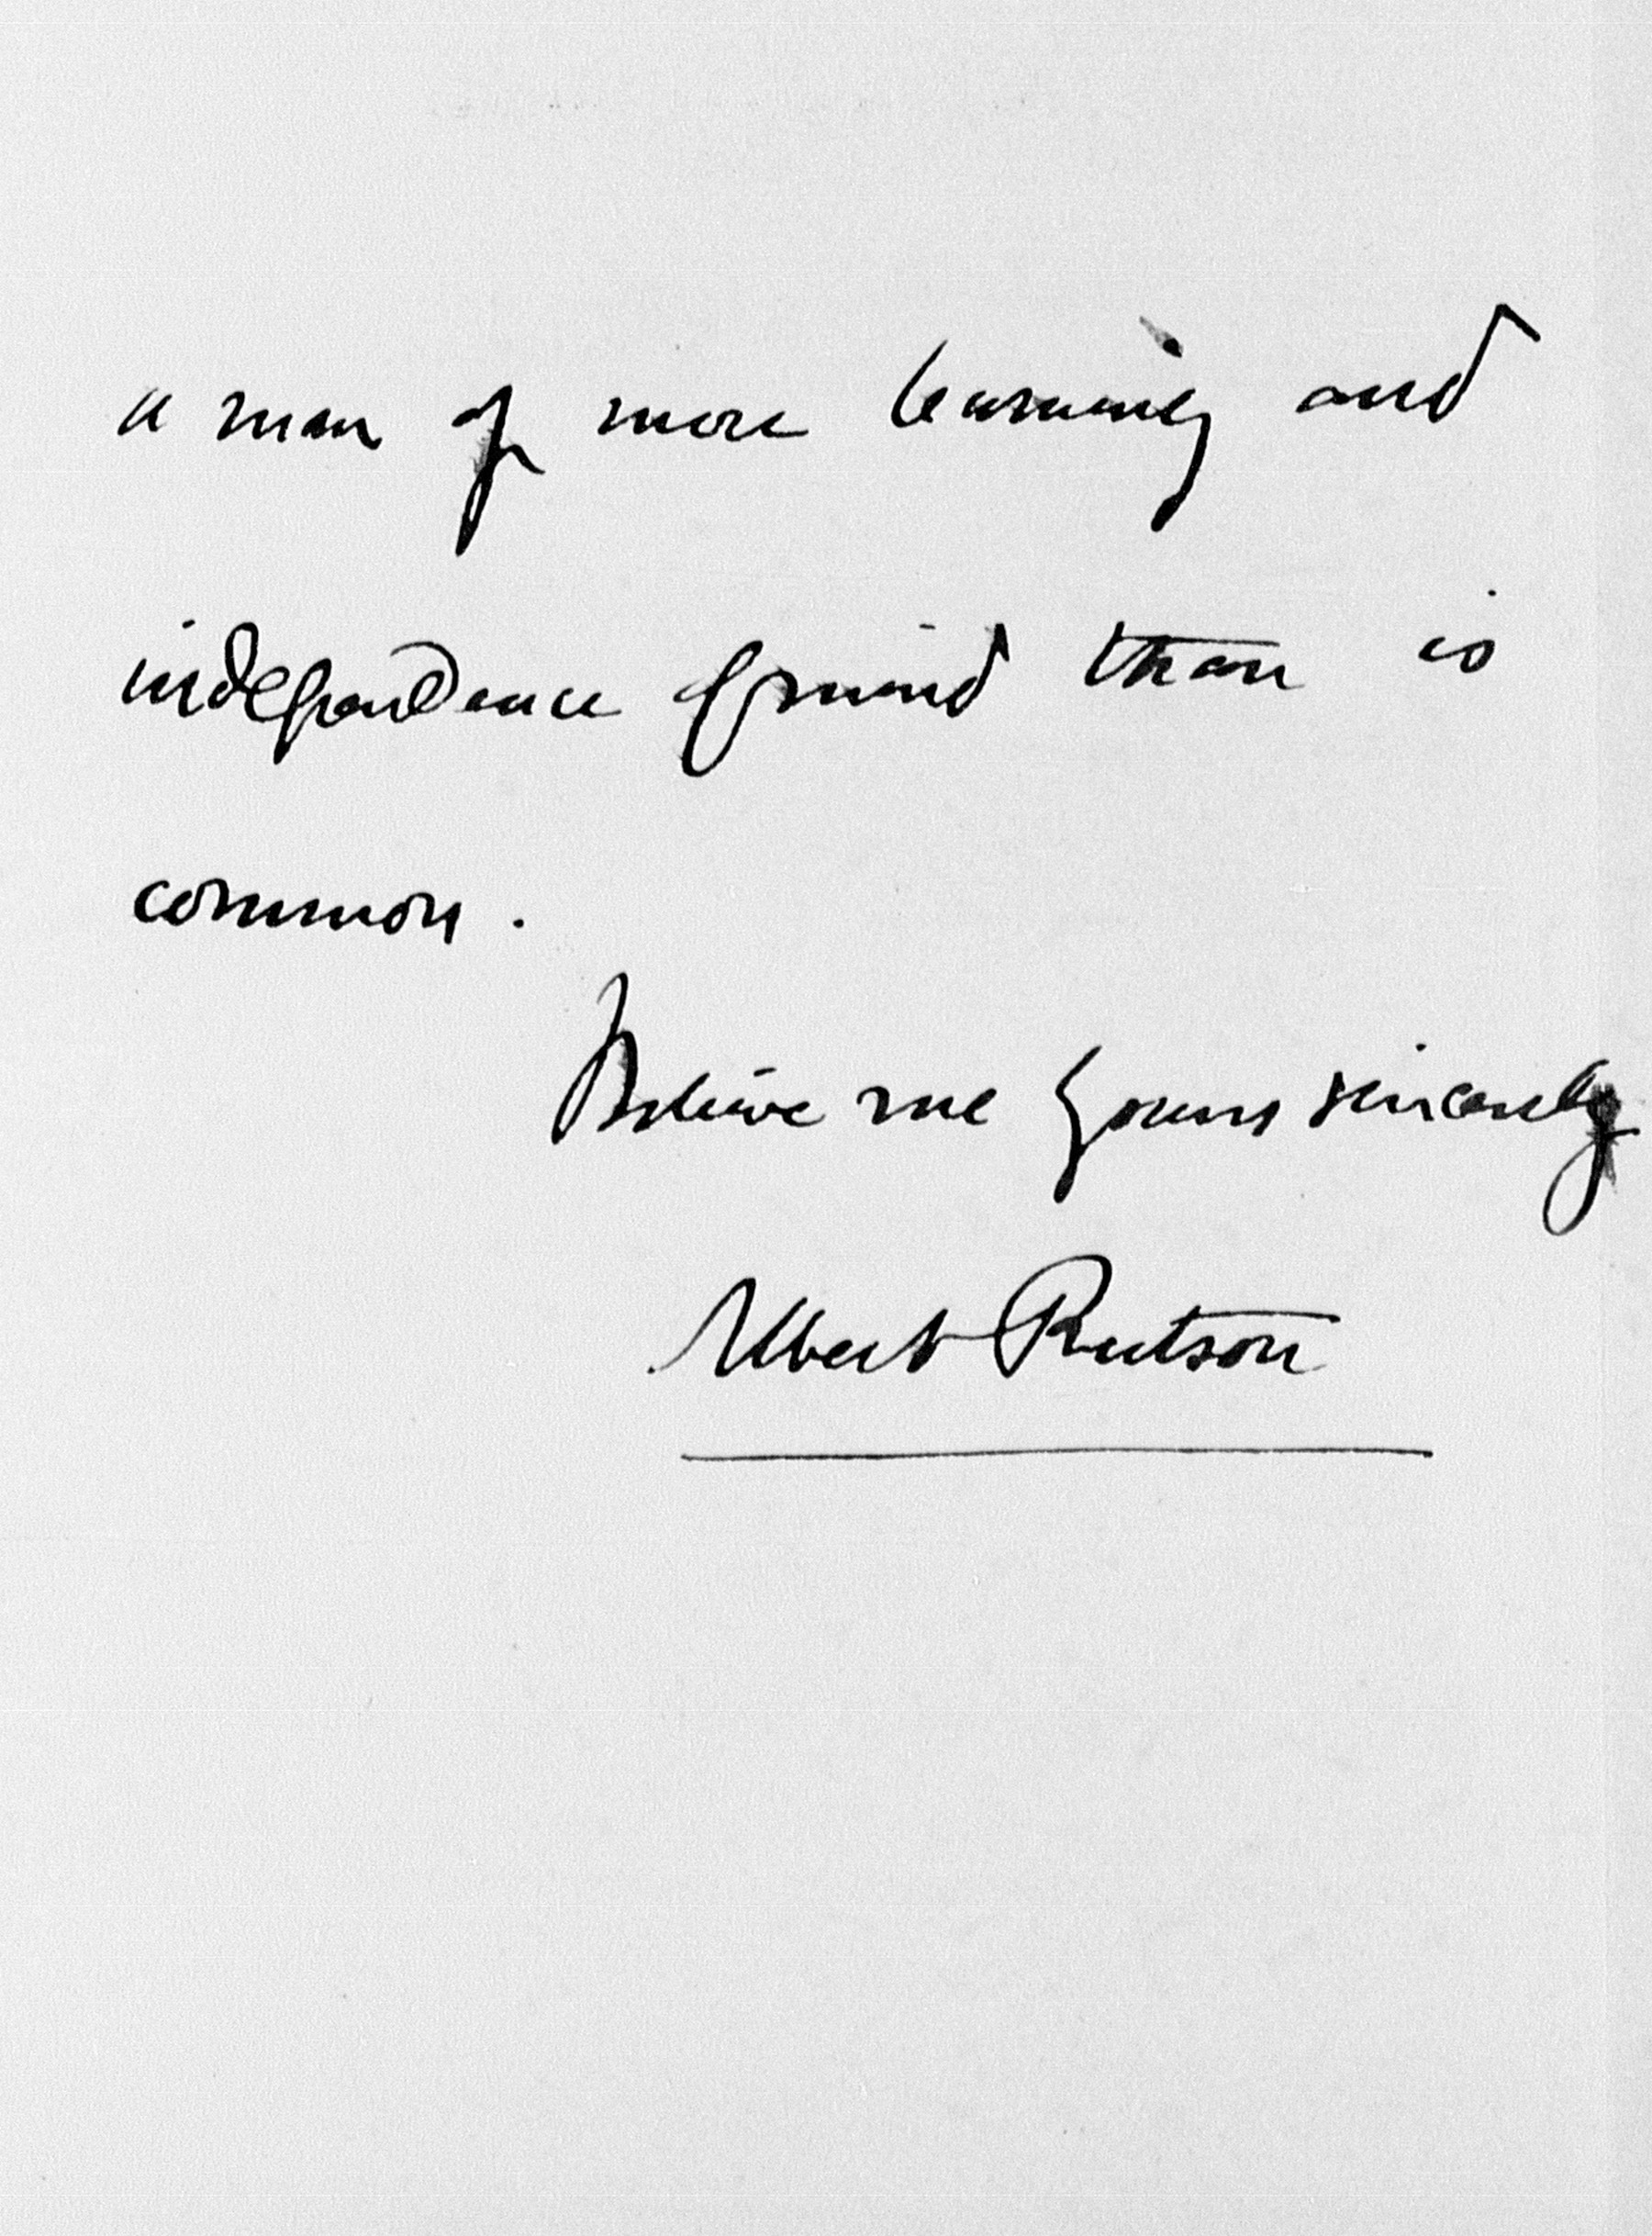 a man of more learning and
independence of mind than is
common.
Believe me yours sincerely
Albert Rutson